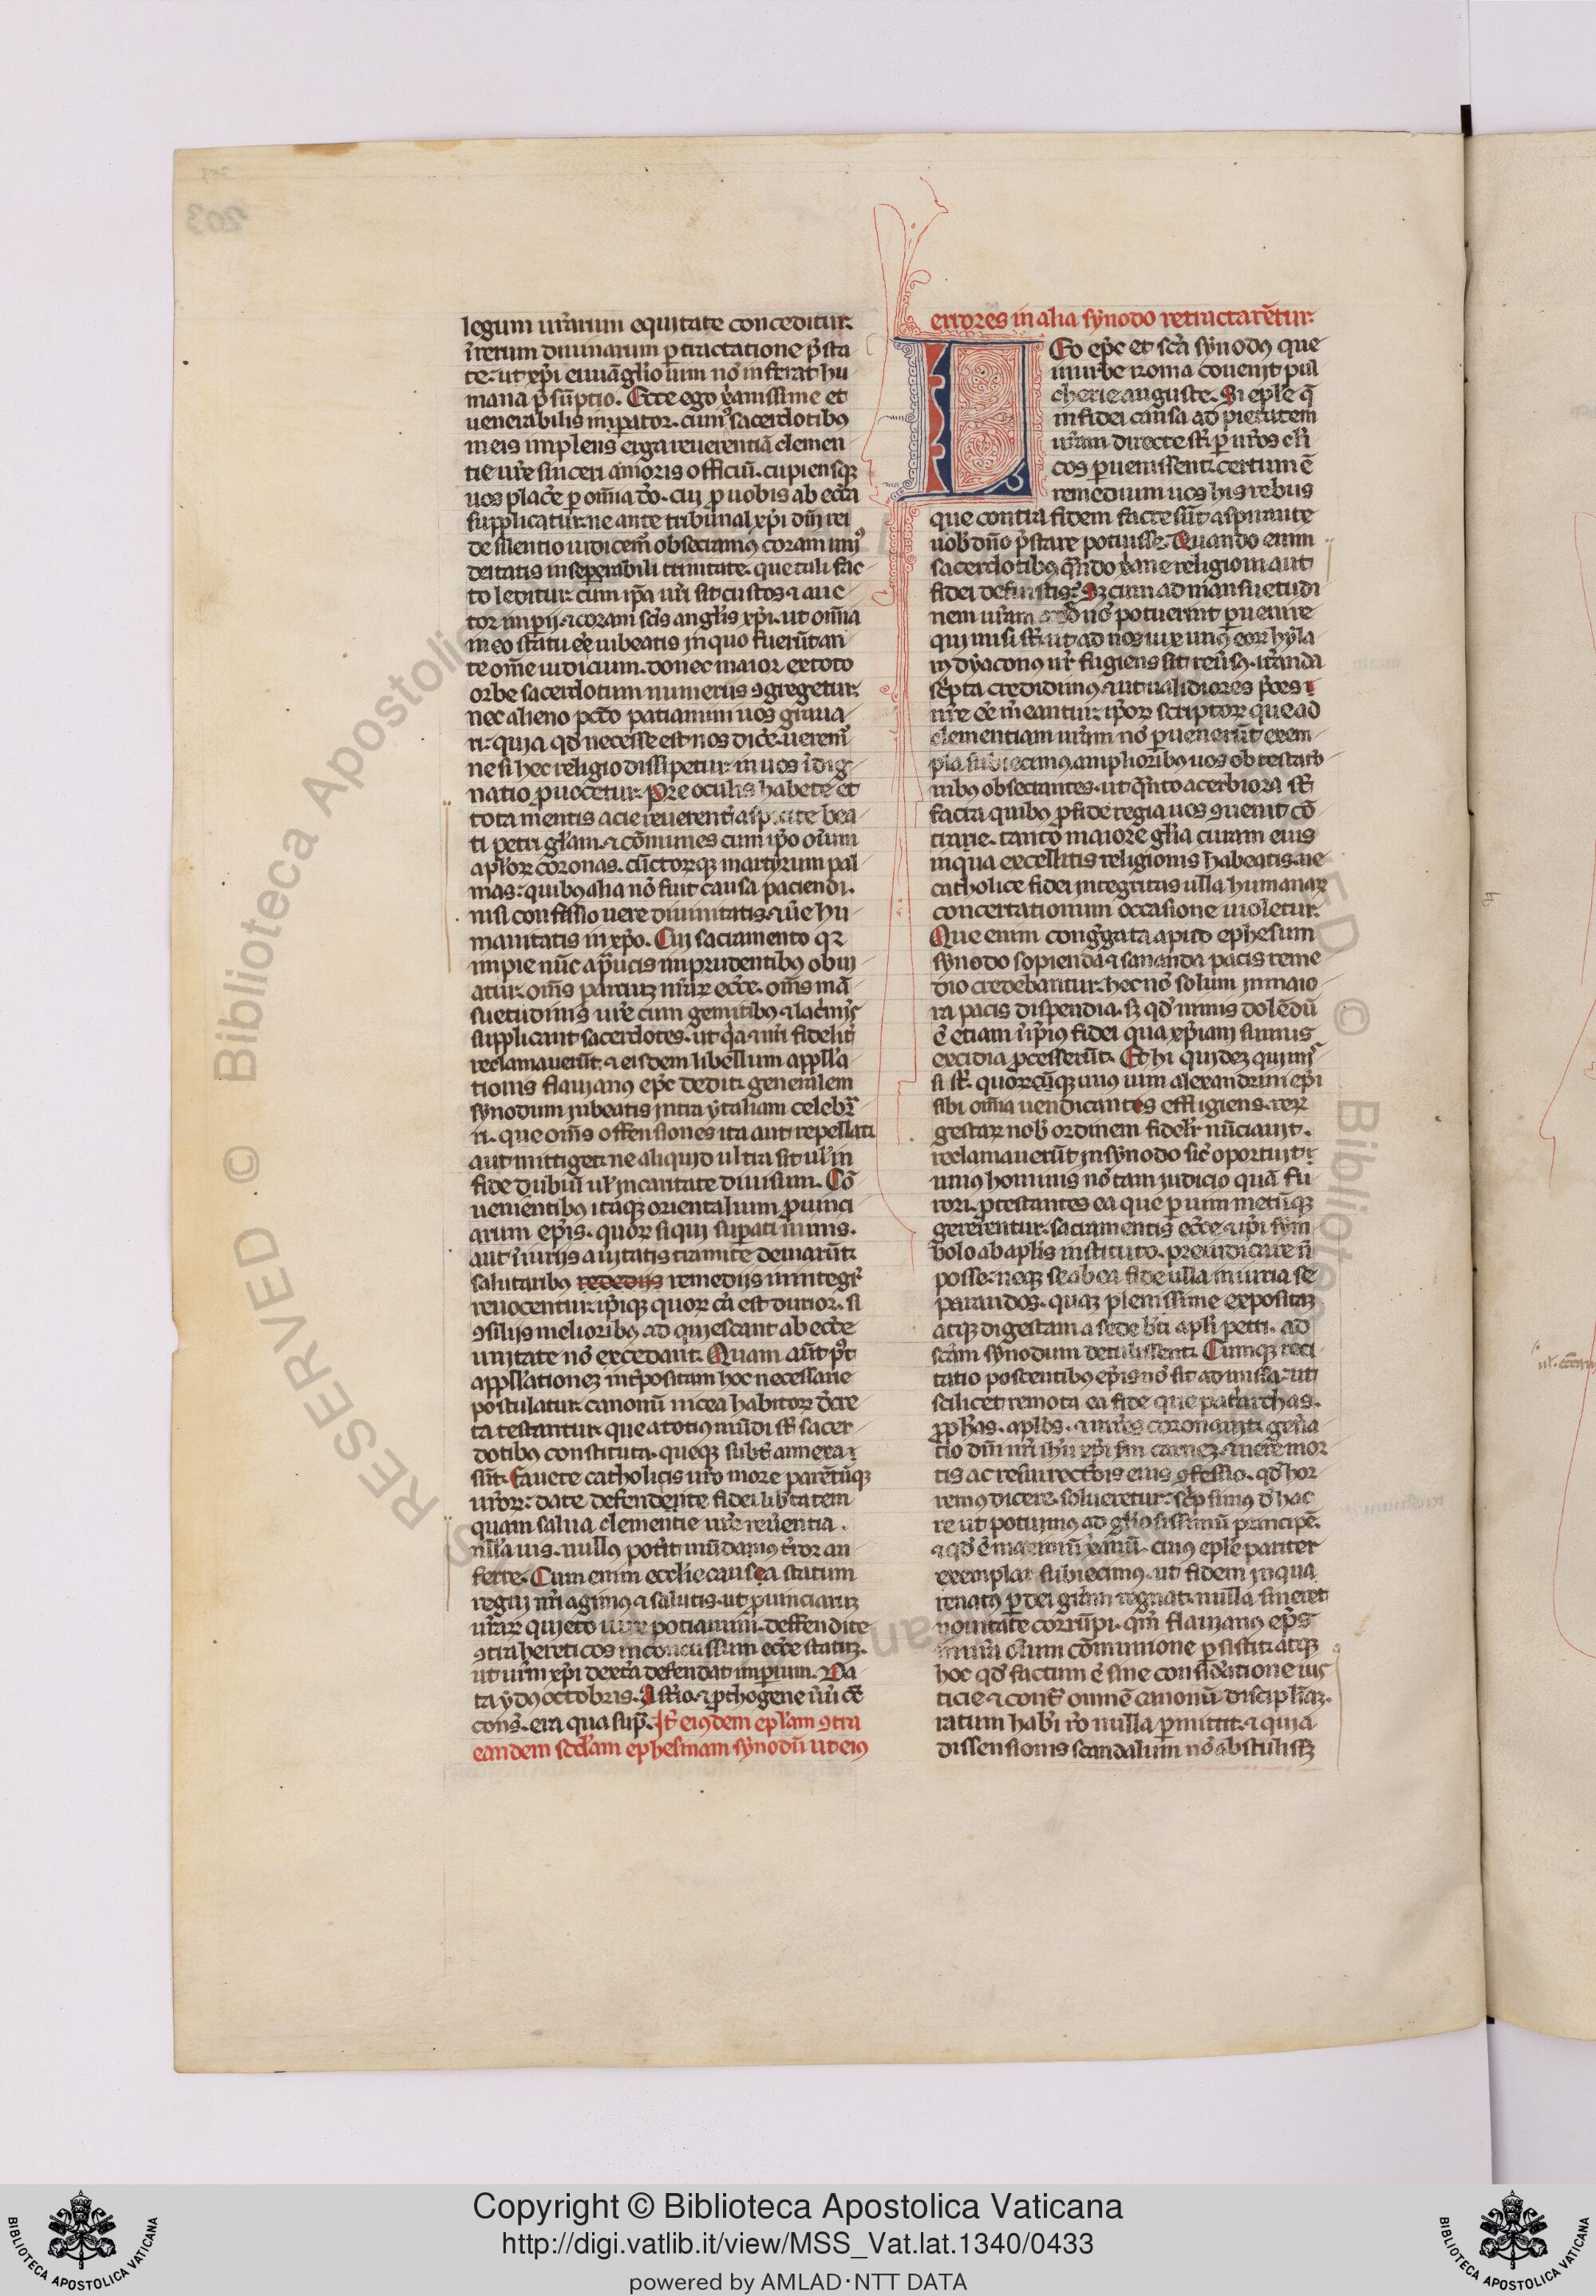 legum ur̄arum equitate conceditur.
ī rerum diuinarum ꝑtractatione p̄sta
te. ut xp̄i euuāglio uim nō inferat hu
mana p̄sūptio. Ecce ego xānissime et
uenerabilis imꝑator. cum ꝯsacerdotibꝰ
meis implens erga reuerentiā clemen
tie ur̄e sinceri amoris officiū. cupiensqꝫ
uos plac̄e ꝑ om̄ia d̄o. cui ꝓ uobis ab ecc̄a
supplicatur. ne ante tribunal xp̄i dn̄i rei
de silentio iudicem̄. obsecramꝰ coram uniꝰ
deitatis inseperabili trinitate. que tali fac
to leditur. cum ip̄a ur̄i sit custos ⁊ auc
tor imperij. ⁊ coram sc̄is angl̄is xp̄i. ut om̄ia
in eo statu ēe iubeatis in quo fuerūt an
te om̄e iudicium. donec maior ex toto
orbe sacerdotum numerus ꝯgregetur.
nec alieno pctō patiamini uos graua
ri. quia qd̄ necesse est nos dic̄e. uerem̄
ne si hec religio dissipetur. in uos īdig
natio ꝓuocetur. Pre oculis habete et
tota mentis acie reuerent̄ aspicite bea
ti petri gl̄am. ⁊ cōmunes cum ip̄o om̄ium
apl̄oꝝ coronas. cūctorqꝫ martyrum pal
mas. quibꝰ alia nō fuit causa paciendi.
nisi confessio uere diuinitatis. ⁊ ūe hu
manitatis in xp̄o. Cui sacramento qꝛ
impie nūc a paucis imprudentibꝰ obui
atur. om̄s partiuꝫ nr̄aꝝ ecc̄e. om̄s mā
suetudinis ur̄e cum gemitibꝰ ⁊ lac̄mis
supplicant sacerdotes. ut q̄a ⁊ nr̄i fidelit̄
reclamauerūt. ⁊ eisdem libellum appll̄a
tionis flauianꝰ epc̄ dedit. generalem
synodum iubeatis intra ytaliam celebr̄
ri. que om̄s offensiones ita aut repellat
aut mittiget. ne aliquid ultra sit ul̄ in
fide dubiū ul̄ in caritate diuisum. Cō
uenientibꝰ itaqꝫ orientalium ꝓuinci
arum ep̄is. quoꝝ si qui suꝑati minis.
aut īiuriis a uitatis tramite deuiarūt.
salutaribꝰ rededijs remedijs in integr̄
reuocentur. ip̄iqꝫ quoꝝ cā est durior. si
ꝯsilijs melioribꝰ adquiescant ab ecc̄e
unitate nō excedant. Quam aūt pꝰt
appll̄ationeꝫ int̄positam hoc necessarie
postulatur. canonū nicea habitoꝝ dc̄re
ta testantur. que a totiꝰ mūdi st̄ sacer
dotibꝰ constituta. queqꝫ subt̄ annexa
sūt. fauete catholicis ur̄o more parētūqꝫ
ur̄oꝝ. date defendente fidei libt̄atem
quam salua clementie ur̄e reuerentia.
nulla uis. nullꝰ pot̄it mūdanꝰ t̄ror au
ferre. Cum enim ecclie causa statum
regni nr̄i agimꝰ ⁊ salutis. ut ꝓuinciaruꝫ
ur̄aꝝ quieto iure potiamini. deffendite
ꝯtra hereticos inconcussum ecc̄e statuꝫ.
ut ur̄m xp̄i dext̄a defendat imꝑium. Da
ta ydꝰ octobris. Ast̄io. ⁊ ꝓthogene uiri cē
cons. era qua sup̄. It̄ eiꝰdem epl̄am ꝯtra
eandem scd̄am ephesinam synodū ut eiꝰ
errores in alia synodo retractarētur.
Leo epc̄ et sc̄a synodꝰ que
in urbe roma cōuenit pul
cherie auguste. Si epl̄e q̄
in fidei causa ad pietatem
ur̄am directe st̄ ꝑ nr̄os cl̄i
cos ꝑuenissent. certum ē
remedium uos his rebus
que contra fidem facte sūt aspirante
uob̄ dn̄o p̄stare potuisse. Quando enim
sacerdotibꝰ q̄ndo xāne religioni aut
fidei defuistis. Sꝫ cum ad mansuetudi
nem ur̄am nō potuerint ꝑuenire
qui missi st̄. ut ad nos uix unꝰ eoꝝ hyla
iꝰ dyaconꝰ nr̄ fugiens sit reūsꝰ. it̄anda
sc̄pta credidimꝰ. ⁊ ut ualidiores p̄ces
nr̄e ēe m̄eantur. ip̄oꝝ scriptoꝝ que ad
clementiam ur̄am nō ꝑuenerūt exem
pla subiecimꝰ. amplioribꝰ uos obtestatō
nibꝰ obsecrantes. ut q̄nto acerbiora st̄
facta quibꝰ ꝓ fide regia uos ꝯuenit cō
traire. tanto maiore gl̄ia curam eius
in qua excellitis religionis habeatis. ne
catholice fidei integritas ulla humanaꝝ
concertationum occasione uioletur.
Que enim cong̃gata apud ephesum
synodo sopienda ⁊ sananda pacis reme
dio credebantur. hec nō solum in maio
ra pacis dispendia. sꝫ qd̄ nimis dolēdū
ē etiam ip̄ius fidei qua xp̄iani sumus
excidia ꝓcesserūt. Et hi quideꝫ qui mis
si st̄. quoꝝcūqꝫ unꝰ uim alexandrini ep̄i
sibi om̄ia uendicantes effugiens. reꝝ
gestaꝝ nob̄ ordinem fidel̄r nūciauit.
reclamauerūt in synodo sic̄ oportuit.
unius hominis nō tam iudicio quā fu
rori. ꝓtestantes ea que ꝑ uim metūqꝫ
gererentur. sacramentis ecc̄e ⁊ ip̄i sym
bolo ab apl̄is instituto. preiudicare n̄
posse. neqꝫ se ab ea fide ulla iniuria se
parandos. quaꝫ plenissime expositaꝫ
atqꝫ digestam a sede bt̄i apl̄i petri. ad
sc̄am synodum detulissent. Cumqꝫ reci
tatio poscentibꝰ ep̄is nō sit admissa. ut
scilicet remota ea fide que pat̄archas.
ꝓph̄as. apl̄os. ⁊ mr̄es coronauit. gen̄a
tio dn̄i nr̄i ih̄u xp̄i sm̄ carneꝫ ⁊ uere mor
tis ac resurrectōis eius ꝯfessio. qd̄ hor
remꝰ dicere. solueretur. sc̄psimꝰ d̄ hac
re ut potuimꝰ ad gl̄osissimū principē.
⁊ qd̄ ē maximū xānū. cuiꝰ epl̄e pariter
exemplar subiecimꝰ. ut fidem in qua
renatꝰ ꝑ dei gr̄am regnat. nulla sineret
nouitate corrūpi. qm̄ flauianꝰ ep̄s
in nr̄a oīum cōmunione ꝑsistit. atqꝫ
hoc qd̄ factum ē sine consid̄atione ius
ticie ⁊ cont̄ omnē canonū disciplīaꝫ.
ratum hab̄i rō nulla ꝑmittit. ⁊ quia
dissensionis scandalum nō abstulissꝫ
203
Copyright © Biblioteca Apostolica Vaticana
http://digi.vatlib.it/view/MSS_Vat.lat.1340/0433
powered by AMLAD·NTT DATA
BIBLIOTECA APOSTOLICA VATICANA
BIBLIOTECA APOSTOLICA VATICANA